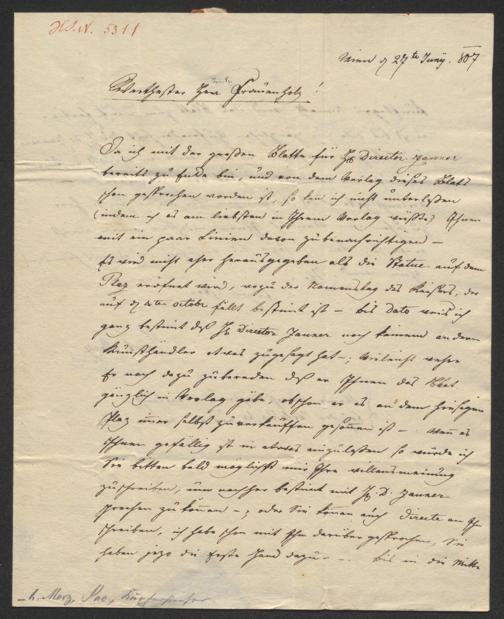 H.S.N. 5311
Wien d 27te Juny. 807
Werthester Herr Frauenholz!
Da ich mit der großen Platte für H. Director Zauner
bereits zu Ende bin, und von dem Verlag dieses Blats
schon gesprochen worden ist, so kan ich nicht unterlaßen
(indem ich es am liebsten in Ihrem Verlag wißte) Ihnen
mit ein paar Linien davon zu benachrichtigen –
Es wird nicht eher herausgegeben als die Statue auf dem
Plaz eröfnet wird, wozu der Namenstag des Kaisers, der
auf d 4ten Octobr fällt bestimt ist – bis dato weis ich
ganz bestimt daß H. Director Zauner noch keinem andern
Kunsthändler etwas zugesagt hat –; vieleicht wäre
Er noch dazu zubereden daß er Ihnen das Blat
gänzlich in Verlag gäbe obschon er es an dem hiesigen
Plaz imer selbst zuverkauffen gesonnen ist – wenn es
Ihnen gefällig ist in etwas einzulaßen so würde ich
Sie bitten bald möglichst mir Ihre willensmeinung
zuschreiben, um nachher bestimt mit H. D. Zauner
sprechen zu können –; oder Sie könen auch directe an Ihn
schreiben, ich habe schon mit Ihm darüber gesprochen, Sie
haben jezo die Erste Hand dazu – – bis in die Mitte